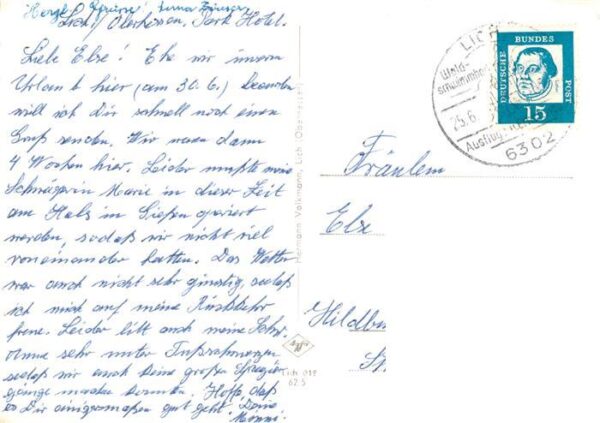 Herzl. Grüsse Erna
Lich/Oberhessen, Park Hotel.
Liebe Else! Ehe wir unsern
Urlaub hier (am 30.6.) beenden
will ich Dir schnell noch einen
Gruß senden. Wir waren dann
4 Wochen hier. Leider mußte meine
Schwägerin Marie in dieser Zeit
am Hals in Gießen operiert
werden, sodaß wir nicht viel
voneinander hatten. Das Wetter
war auch nicht sehr günstig, sodaß
ich mich auf meine Rückkehr
freue. Leider litt auch meine Schw.
sehr unter
sodaß wir auch keine großen Spazier-
gänge machen konnten. Hoffe, daß
es Dir einigermaßen gut geht. Deine
Hermann Volkmann, Lich (Oberhessen)
Lich 018
62 5
LICH
Wald-
schwimmbad
25.6.
Ausflug
6302
DEUTSCHE BUNDESPOST
15
Fräulein
Else
Hildbu
St.